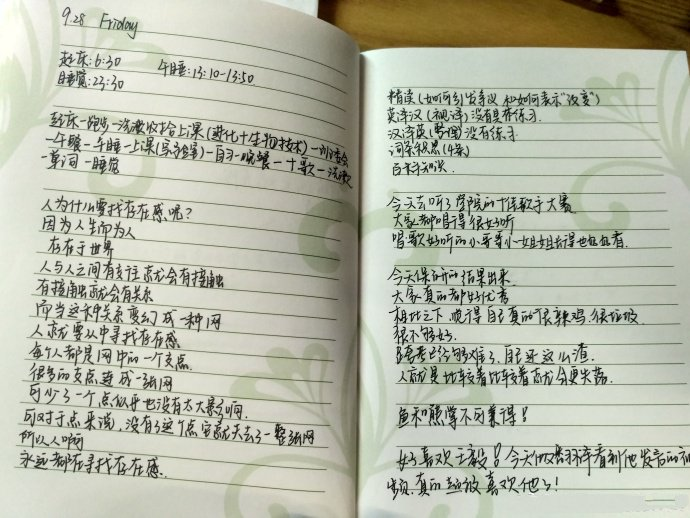 9.28 Friday
起床:6:30 午睡:13:10-13:50
睡觉:23:30
起床一跑步一洗漱收拾上课(进化+生物技术)一
一午餐一午睡一上课(写字鉴宝)一自习一晚餐一十歌一洗漱
一单词一睡觉
人为什么要找存在感呢?
因为人生而为人
存在于世界
人与人之间有交往就会有接触
有接触就会有关系
而当这种关系变幻成一种网
人就要从中寻找存在感
每个人都是网中的一个支点
很多的支点连成一张网
可少了一个点似乎也没有太大影响
可对于点来说,没有了这个点它就失去了一整张网
所以人啊
永远都在寻找存在感.
精读(如何引发争议和如何表示"改变")
英译汉(视译)没有具体练习
汉译英()没有练习.
词条积累(4条)
百科知识.
今天去听了学院的十佳歌手大赛
大家都唱得很好听
唱歌好听的小哥哥小姐姐长得也好好看.
今天保研的结果出来.
大家真的都好优秀
相比之下.顿觉得自己真的很辣鸡.很垃圾.
很不够好.
竞考已经够难了,自己还这么渣.
人就是比较着比较着就会更失落.
鱼和熊掌不可兼得!
好喜欢王毅!今天做翻译看到他发言的
视频.真的超级喜欢他了!